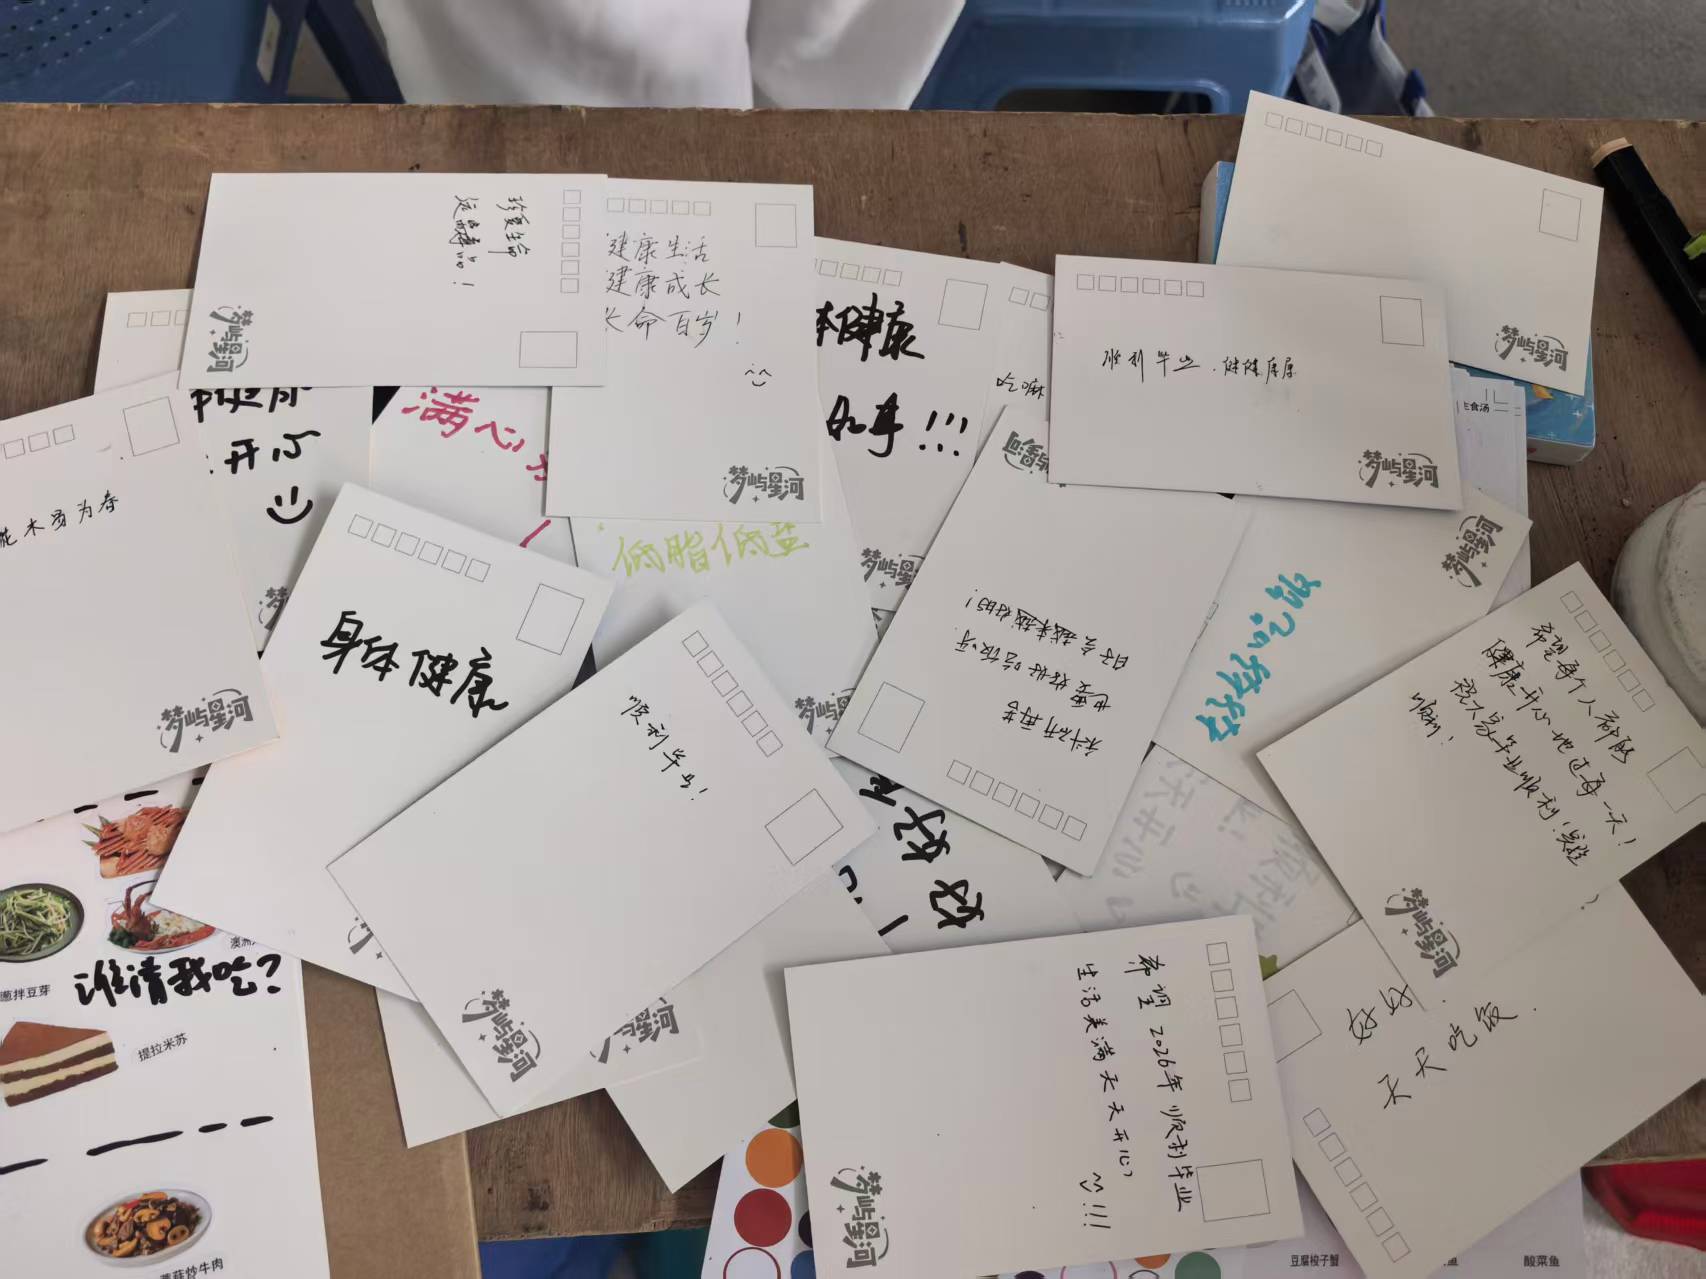 珍爱生命
远离毒品！
梦屿星河
健康生活
健康成长
长命百岁！
梦屿星河
体健康
如事!!!
梦屿星
吃嘛
顺利毕业.健健康康
梦屿星河
梦屿星河
主食汤
花木易为春
梦屿星河
开心
满心
低脂低盐
梦屿星
身体健康
顺利毕业!
梦屿星河
科研再苦
也要好好吃饭呀
日子会越来越好的!
梦屿星河
希望每个人都能
健康开心地过每一天!
祝大家毕业顺利!实验
顺利!
梦屿星河
好好
天天开心
顺利
希望 2026年 顺利毕业
生活美满 天天开心
!!!
梦屿星河
好好
天天吃饭
葱拌豆芽
澳洲
谁请我吃?
提拉米苏
菇炒牛肉
豆腐梭子蟹
鱼
酸菜鱼